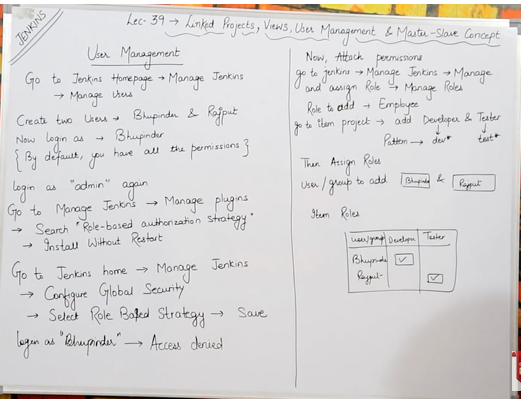 JENKINS
Lec-39 → Linked Projects, Views, User Management & Master-Slave Concept
User Management
Go to Jenkins Homepage → Manage Jenkins
→ Manage Users
Create two Users → Bhupinder & Rajput
Now login as → Bhupinder
{ By default, you have all the permissions }
login as "admin" again
Go to Manage Jenkins → Manage plugins
→ Search "Role-based authorization strategy"
→ Install Without Restart
Go to Jenkins home → Manage Jenkins
→ Configure Global Security
→ Select Role Based Strategy → Save
login as "Bhupinder" → Access denied
Now, Attach permissions
go to jenkins → Manage Jenkins → Manage
and assign Role → Manage Roles
Role to add → Employee
go to Item project → add Developer & Tester
Pattern → dev* test*
Then Assign Roles
User/group to add Bhupinder & Rajput
Item Roles
User/group Developer Tester
Bhupinder ✓
Rajput- ✓